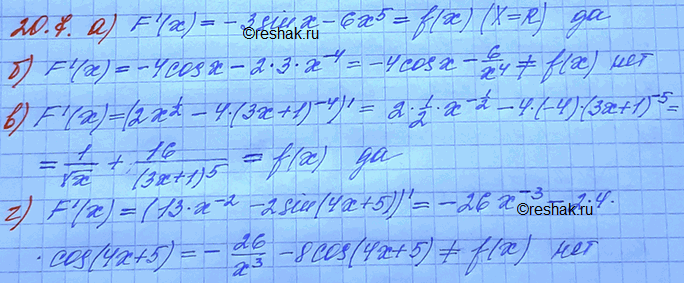 20.7. а) F'(x) = -3sinx - 6x⁵ = f(x) (X=R) да
©reshak.ru
б) F'(x) = -4cosx - 2·3·x⁻⁴ = -4cosx - 6/x⁴ ≠ f(x) нет
в) F'(x) = (2x^(1/2) - 4·(3x+1)⁻⁴)' = 2·1/2·x^(-1/2) - 4·(-4)·(3x+1)⁻⁵ =
= 1/√x + 16/(3x+1)⁵ = f(x) да
г) F'(x) = (13·x⁻² - 2sin(4x+5))' = -26x⁻³ - 2·4·
©reshak.ru
·cos(4x+5) = - 26/x³ - 8cos(4x+5) ≠ f(x) нет